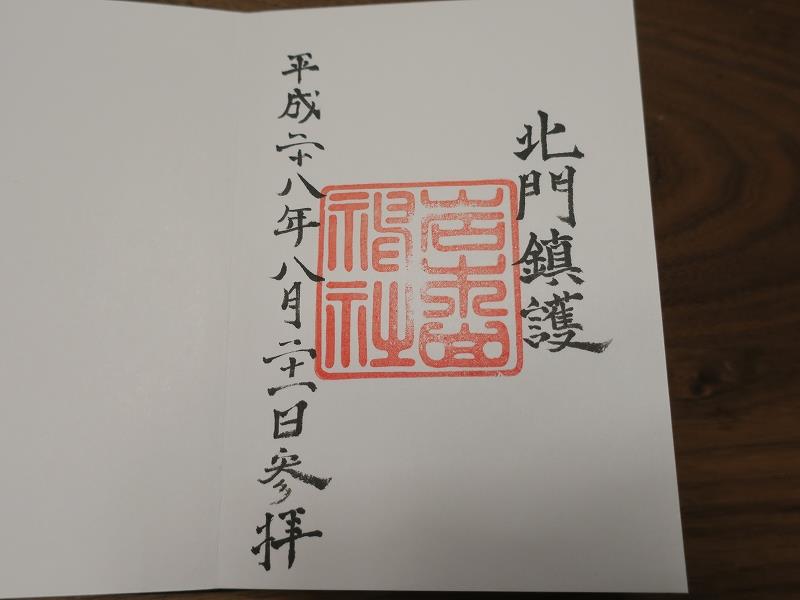 北門鎮護
岩木山
神社
平成二十八年八月二十一日参拝